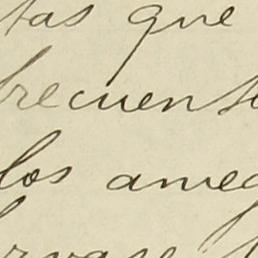 tas que
frecuent
los aneg
rvase